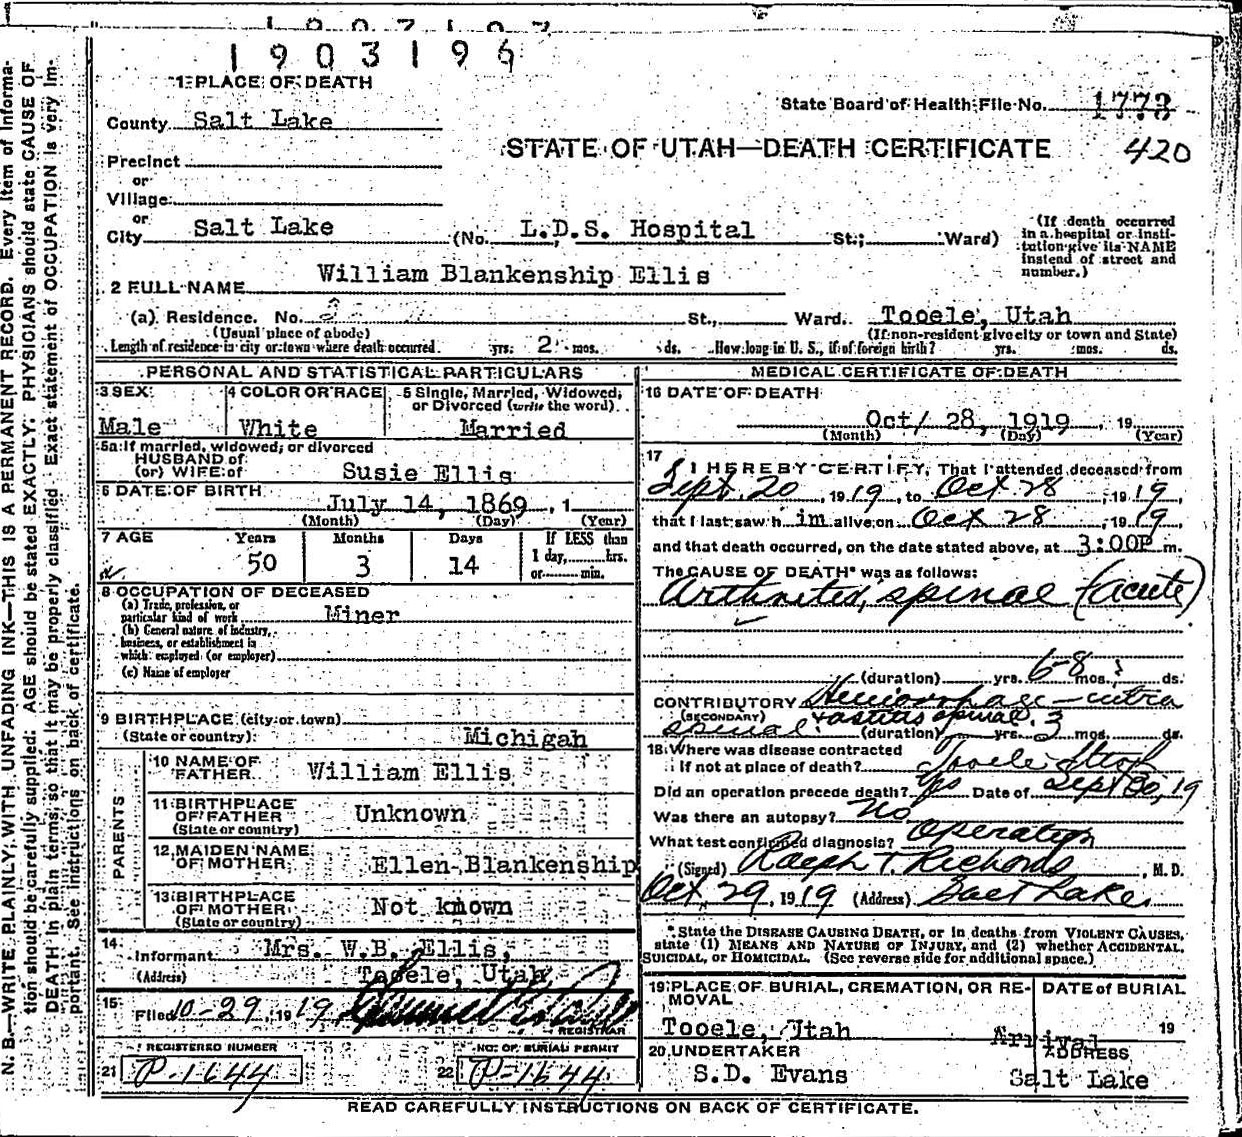 1903196
1 PLACE OF DEATH
State Board of Health File No. 1773
County Salt Lake
STATE OF UTAH—DEATH CERTIFICATE 420
Precinct
or
Village
or
City Salt Lake (No. L.D.S. Hospital St.; Ward)
(If death occurred in a hospital or insti-
tution give its NAME instead of street and number.)
2 FULL NAME William Blankenship Ellis
(a) Residence. No. St., Ward. Tooele, Utah
(Usual place of abode) (If non-resident give city or town and State)
Length of residence in city or town where death occurred. yrs. 2 mos. ds. How long in U. S., if of foreign birth? yrs. mos. ds.
PERSONAL AND STATISTICAL PARTICULARS
3 SEX 4 COLOR OR RACE 5 Single, Married, Widowed, or Divorced (write the word)
Male White Married
5a If married, widowed, or divorced
HUSBAND of
(or) WIFE of Susie Ellis
6 DATE OF BIRTH July 14, 1869, 1
(Month) (Day) (Year)
7 AGE Years Months Days If LESS than
50 3 14 1 day, hrs.
or min.
8 OCCUPATION OF DECEASED
(a) Trade, profession, or
particular kind of work Miner
(b) General nature of industry,
business, or establishment in
which employed (or employer)
(c) Name of employer
9 BIRTHPLACE (city or town)
(State or country) Michigan
PARENTS
10 NAME OF FATHER William Ellis
11 BIRTHPLACE OF FATHER Unknown
(State or country)
12 MAIDEN NAME OF MOTHER Ellen Blankenship
13 BIRTHPLACE OF MOTHER Not known
(State or country)
14 Informant Mrs. W.B. Ellis,
(Address) Tooele, Utah
15 Filed 10-29, 1919
REGISTRAR
REGISTERED NUMBER NO. OF BURIAL PERMIT
21 P-1644 22 P-1644
MEDICAL CERTIFICATE OF DEATH
16 DATE OF DEATH
Oct/ 28, 1919, 19
(Month) (Day) (Year)
17 I HEREBY CERTIFY, That I attended deceased from
Sept. 20, 1919, to Oct 28, 1919,
that I last saw h im alive on Oct 28, 1919,
and that death occurred, on the date stated above, at 3:00P m.
The CAUSE OF DEATH* was as follows:
Arthrites, spinal (acute)
(duration) yrs. 6-8 mos. ds.
CONTRIBUTORY Hemorrhage - intra
(SECONDARY) spinal
(duration) yrs. 3 mos. ds.
18 Where was disease contracted
if not at place of death? Tooele Utah
Did an operation precede death? Yes Date of Sept 30, 19
Was there an autopsy? No
What test confirmed diagnosis? Operation
(Signed) Ralph T. Richards, M. D.
Oct 29, 1919 (Address) Salt Lake.
*State the DISEASE CAUSING DEATH, or in deaths from VIOLENT CAUSES,
state (1) MEANS AND NATURE OF INJURY, and (2) whether ACCIDENTAL,
SUICIDAL, or HOMICIDAL. (See reverse side for additional space.)
19 PLACE OF BURIAL, CREMATION, OR RE-
MOVAL DATE of BURIAL
Tooele, Utah Arrival 19
20 UNDERTAKER ADDRESS
S.D. Evans Salt Lake
READ CAREFULLY INSTRUCTIONS ON BACK OF CERTIFICATE.
N. B.—WRITE PLAINLY, WITH UNFADING INK—THIS IS A PERMANENT RECORD. Every item of informa-
tion should be carefully supplied. AGE should be stated EXACTLY. PHYSICIANS should state CAUSE OF
DEATH in plain terms, so that it may be properly classified. Exact statement of OCCUPATION is very im-
portant. See instructions on back of certificate.